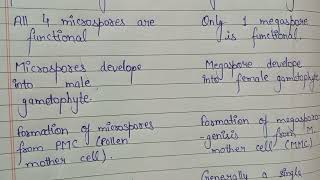 All 4 microspores are
functional
Only 1 megaspore
is functional.
Microspores develope
into male
gametophyte.
Megaspore develope
into female gametophyte
Formation of microspores
from PMC (Pollen
mother cell).
Formation of megaspor
-genisis from M.
mother cell (MMC)
Generally a single